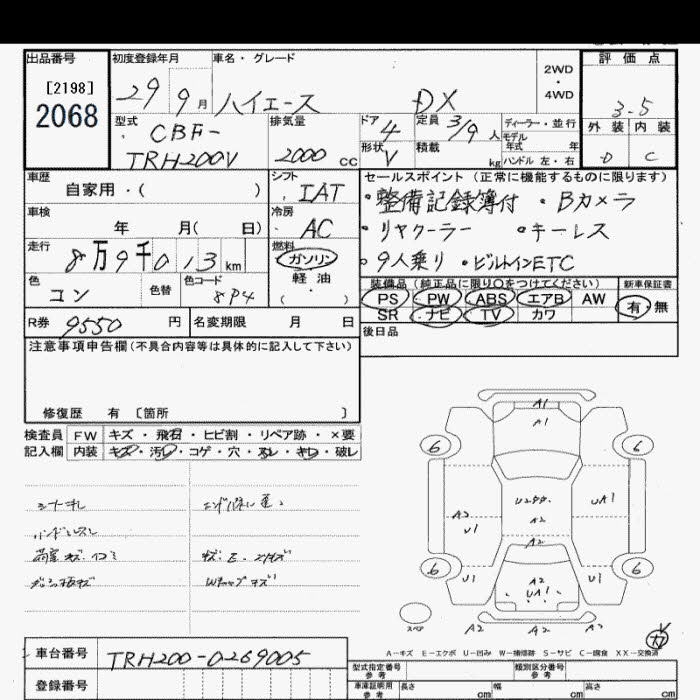 出品番号
[2198]
2068
初度登録年月
29 9月
車名・グレード
ハイエース DX
2WD
・
4WD
評価点
3.5
外装 内装
D C
型式
CBF-
TRH200V
排気量
2000 cc
ドア
4
形状
V
定員
3/9人
積載
kg
ディーラー・並行
モデル
年式 年
ハンドル 左・右
車歴
自家用・( )
シフト
IAT
車検
年 月( 日)
冷房
AC
走行
8万9千013km
燃料
ガソリン
軽油
( ・ )
色
コン
色替
色コード
8P4
R券 9550円
名変期限 月 日
セールスポイント(正常に機能するものに限ります)
・整備記録簿付 ・Bカメラ
・リヤクーラー ・キーレス
・9人乗り ・ビルトインETC
装備品(純正品に限り○をつけてください)
新車保証書
PS PW ABS エアB AW
SR ナビ TV カワ
有・無
後日品
注意事項申告欄(不具合内容等は具体的に記入して下さい)
修復歴 有 〔箇所 〕
検査員
記入欄
FW キズ・飛石・ヒビ割・リペア跡・×要
内装 キズ・汚レ・コゲ・穴・スレ・キレ・破レ
シートキレ
ハンドルスレ
A1
A1
6 6
UA1
A2
U1
A2
A2
6 6
U1 U1
A2
UA1
スペア
A2 A2 A2
A-キズ E-エクボ U-凹み W-補修跡 S-サビ C-腐食 XX-交換済
車台番号 TRH200-0269005
登録番号
型式指定番号
参考
類別区分番号
参考
車庫証明用
参考
長さ cm 幅 cm 高さ cm